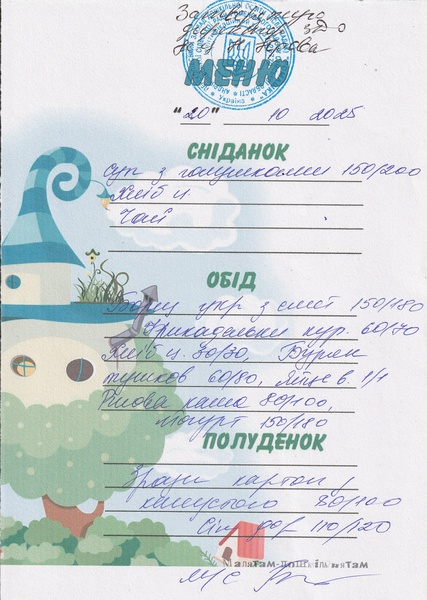 Затверджую
МЕНЮ
"20" 10 2025
СНІДАНОК
Суп з галушками 150/200
Хліб ц.
Чай
ОБІД
Борщ укр з смет 150/180
Фрикадельки кур. 60/70
Хліб ц. 30/30, Буряк
тушков 60/80, Яйце в. 1/1
Рисова каша 80/100,
йогурт 150/180
ПОЛУДЕНОК
Зрази картоп/
капустою 80/100
Сік 110/120
Малятам-дошкільнятам
м/с